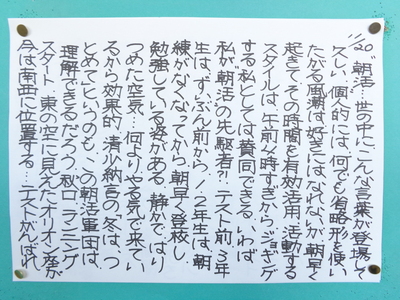 "20" 朝活…世の中にこんな言葉が登場して
久しい。個人的には、何でも省略形を使い
たがる風潮は好きにはなれないが、朝早く
起きて、その時間を有効活用、活動する
スタイルは、午前4時すぎから、ジョギング
する私としては賛同できる。いわば
私が朝活の先駆者?!テスト前、3年
生は、ずいぶん前から/2年生は、朝
練がなくなってから、朝早く登校し
勉強している姿がある。静かで、はり
つめた空気…何よりやる気で来てい
るから効果的。清少納言の「冬は、つ
とめて」というのも、この朝活軍団は、
理解できるだろう。秋口、ランニング
スタート…東の空に見えたオリオン座が
今は南西に位置する…テストがんばれ